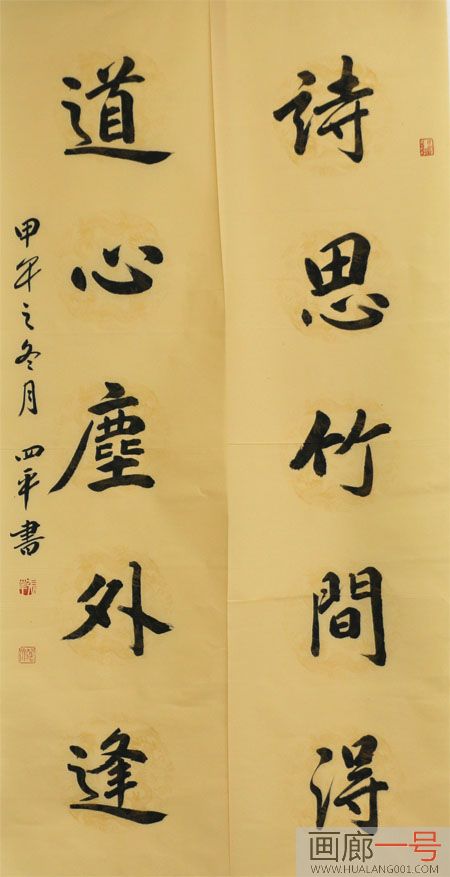 詩思竹間得
道心塵外逢
甲午之冬月 四平書
画廊一号
WWW.HUALANG001.COM